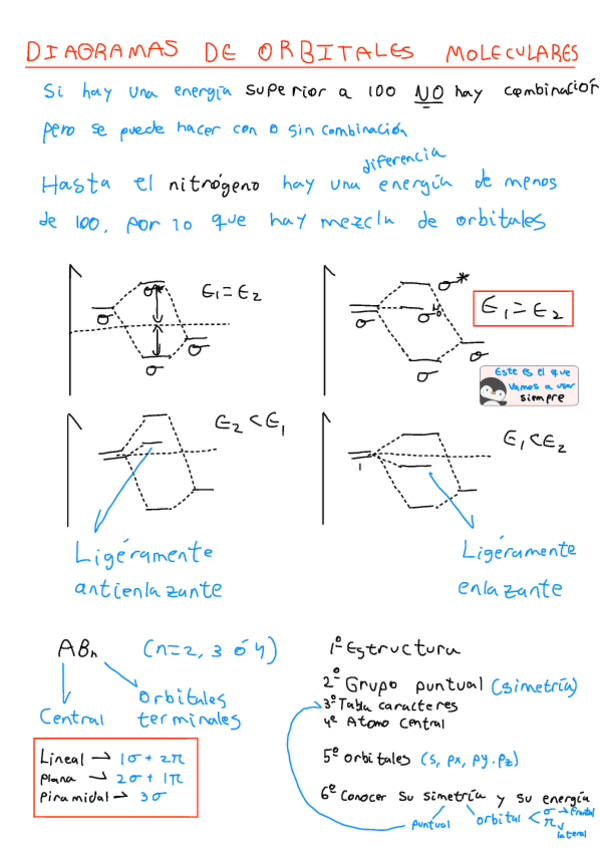 DIAGRAMAS DE ORBITALES MOLECULARES
Si hay una energía superior a 100 NO hay combinación
pero se puede hacer con o sin combinación
diferencia
Hasta el nitrógeno hay una energía de menos
de 100, por lo que hay mezcla de orbitales
σ* Є1=Є2
σ
σ
σ
σ*
σ Є1=Є2
σ
σ
σ
Este es el que
vamos a usar
siempre
Є2<Є1
Є1<Є2
Ligéramente
antienlazante
Ligéramente
enlazante
ABn (n=2, 3 ó 4)
Central
orbitales
terminales
Lineal → 1σ + 2π
Plana → 2σ + 1π
Piramidal → 3σ
1º Estructura
2º Grupo puntual (simetría)
3º Tabla caracteres
4º Atomo central
5º orbitales (s, px, py, pz)
6º Conocer su simetría y su energía
puntual orbital < σ → frontal
π
lateral